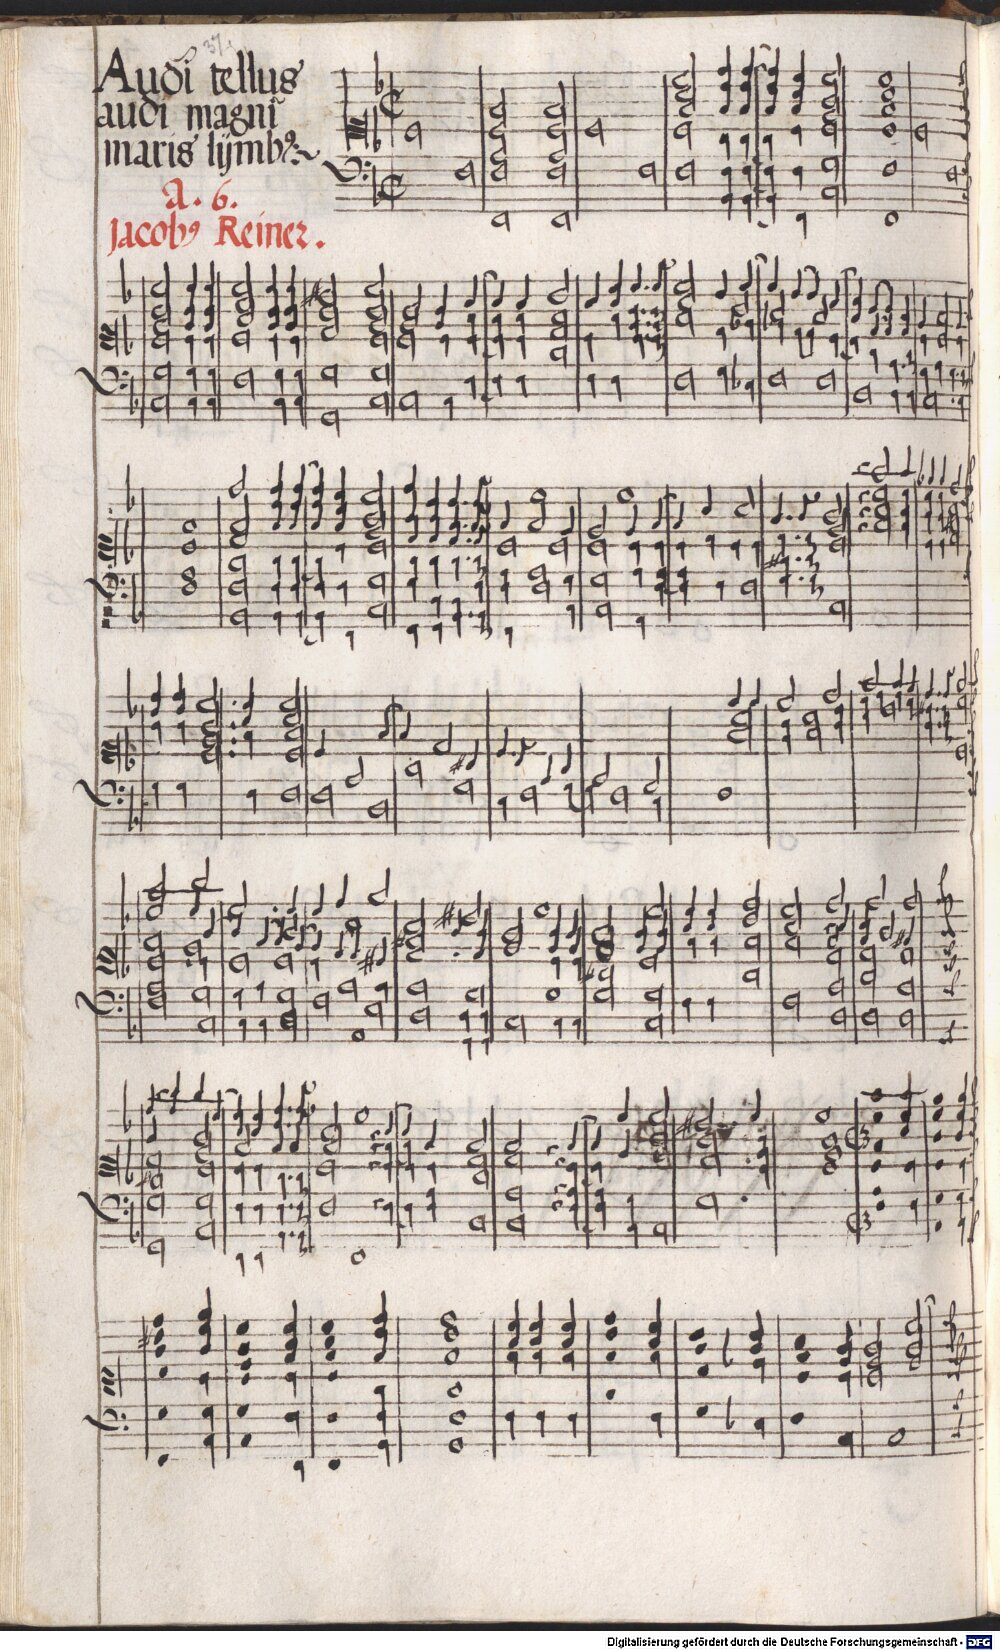 37.
Audi tellus
audi magni
maris lymbꝰ
A. 6.
Jacobꝰ Reiner.
3
3
Digitalisierung gefördert durch die Deutsche Forschungsgemeinschaft - DFG